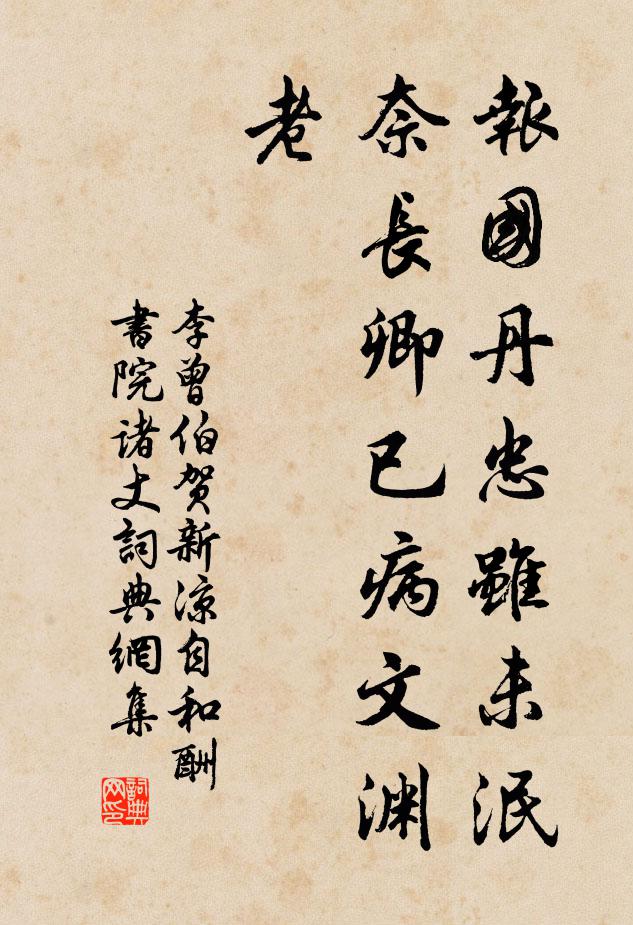 報國丹忠雖未泯
奈長卿已病文渊
老
李曾伯贺新凉自和酬
書院诸丈詞典網集
詞典
网印